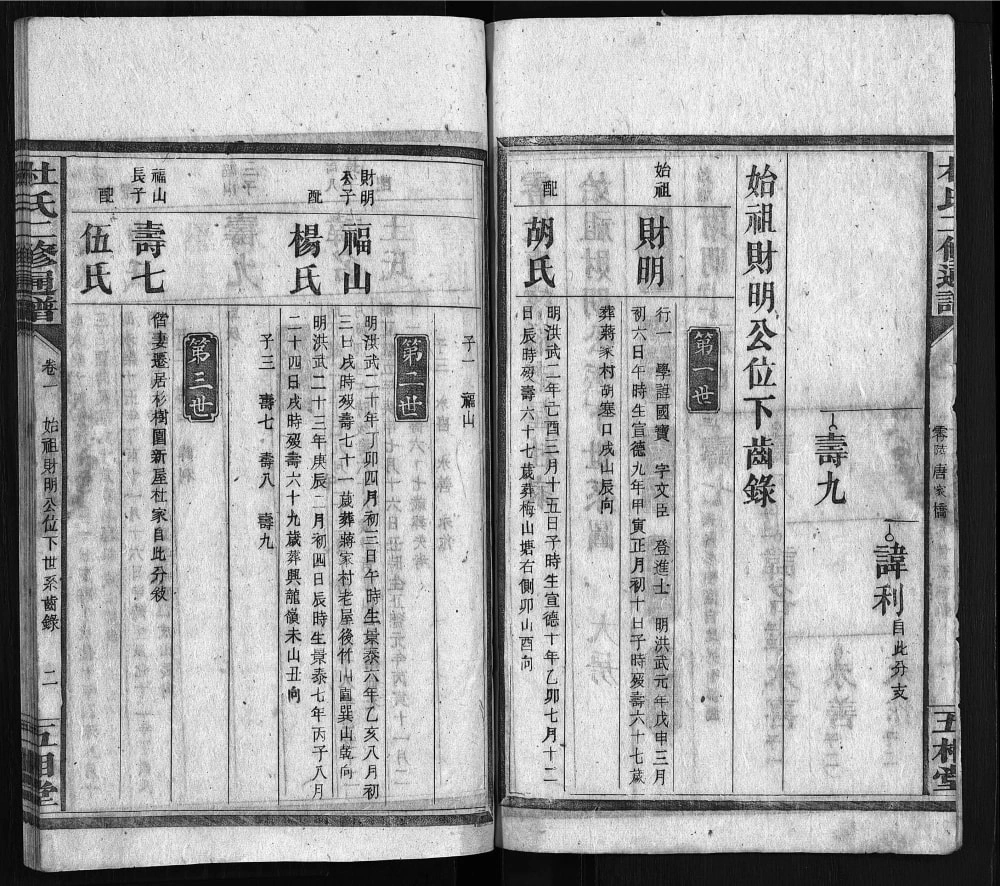 零陵
唐家橋
五相堂
諱利自此分支
壽九
始祖財明公位下齒錄
第一世
始祖
財明
行一 學諱國寶 字文臣 登進士 明洪武元年戊申三月
初六日午時生宣德九年甲寅正月初十日子時歿壽六十七歲
葬蔣家村胡塞口戌山辰向
配
胡氏
明洪武二年己酉三月十五日子時生宣德十年乙卯七月十二
日辰時歿壽六十七歲葬梅山塘右側卯山酉向
子一 福山
第二世
財明
子
福山
明洪武二十年丁卯四月初三日午時生景泰六年乙亥八月初
三日戌時歿壽七十一歲葬蔣家村老屋後竹山巽山乾向
配
楊氏
明洪武二十三年庚辰二月初四日辰時生景泰七年丙子八月
二十四日戌時歿壽六十九歲葬興龍嶺未山丑向
子三 壽七 壽八 壽九
第三世
福山
長子
壽七
偕妻遷居杉樹園新屋杜家自此分
配
伍氏
杜氏二修通譜
卷一
始祖財明公位下世系齒錄
二
五相堂